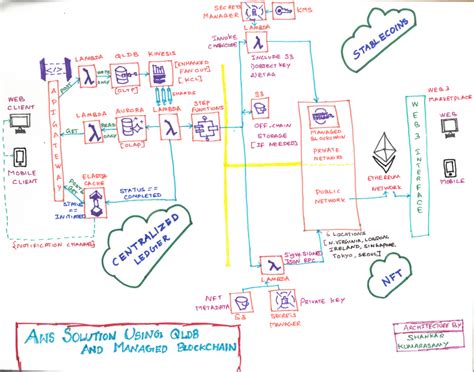 SECRETS
MANAGER
KMS
INVOKE
CHAINCODE
LAMBDA
INCLUDE S3
OBJECT KEY
STABLECOINS
</>
LAMBDA
QLDB
KINESIS
POST
[OLTP]
[ENHANCED
FAN-OUT]
[KCL]
WEB
CLIENT
MOBILE
CLIENT
API GATEWAY
LAMBDA
AURORA
LAMBDA
STEP
FUNCTIONS
GET
READ
[OLAP]
S3
OFF-CHAIN
STORAGE
[IF NEEDED]
MANAGED
BLOCKCHAIN
PRIVATE
NETWORK
PUBLIC
NETWORK
ETHEREUM
NETWORK
WEB3 INTERFACE
WEB3
MARKETPLACE
WEB
MOBILE
ELASTI
CACHE
STATUS ==
COMPLETED
STATUS ==
INITIATED
{NOTIFICATION CHANNEL}
CENTRALIZED
LEDGER
6 LOCATIONS
[N. VIRGINIA, LONDON,
IRELAND, SINGAPORE,
TOKYO, SEOUL]
JSON RPC
LAMBDA
NFT
NFT
METADATA
S3
SECRETS
MANAGER
PRIVATE KEY
AWS SOLUTION USING QLDB
AND MANAGED BLOCKCHAIN
ARCHITECTURE BY
SHANKAR
KUMARASAMY